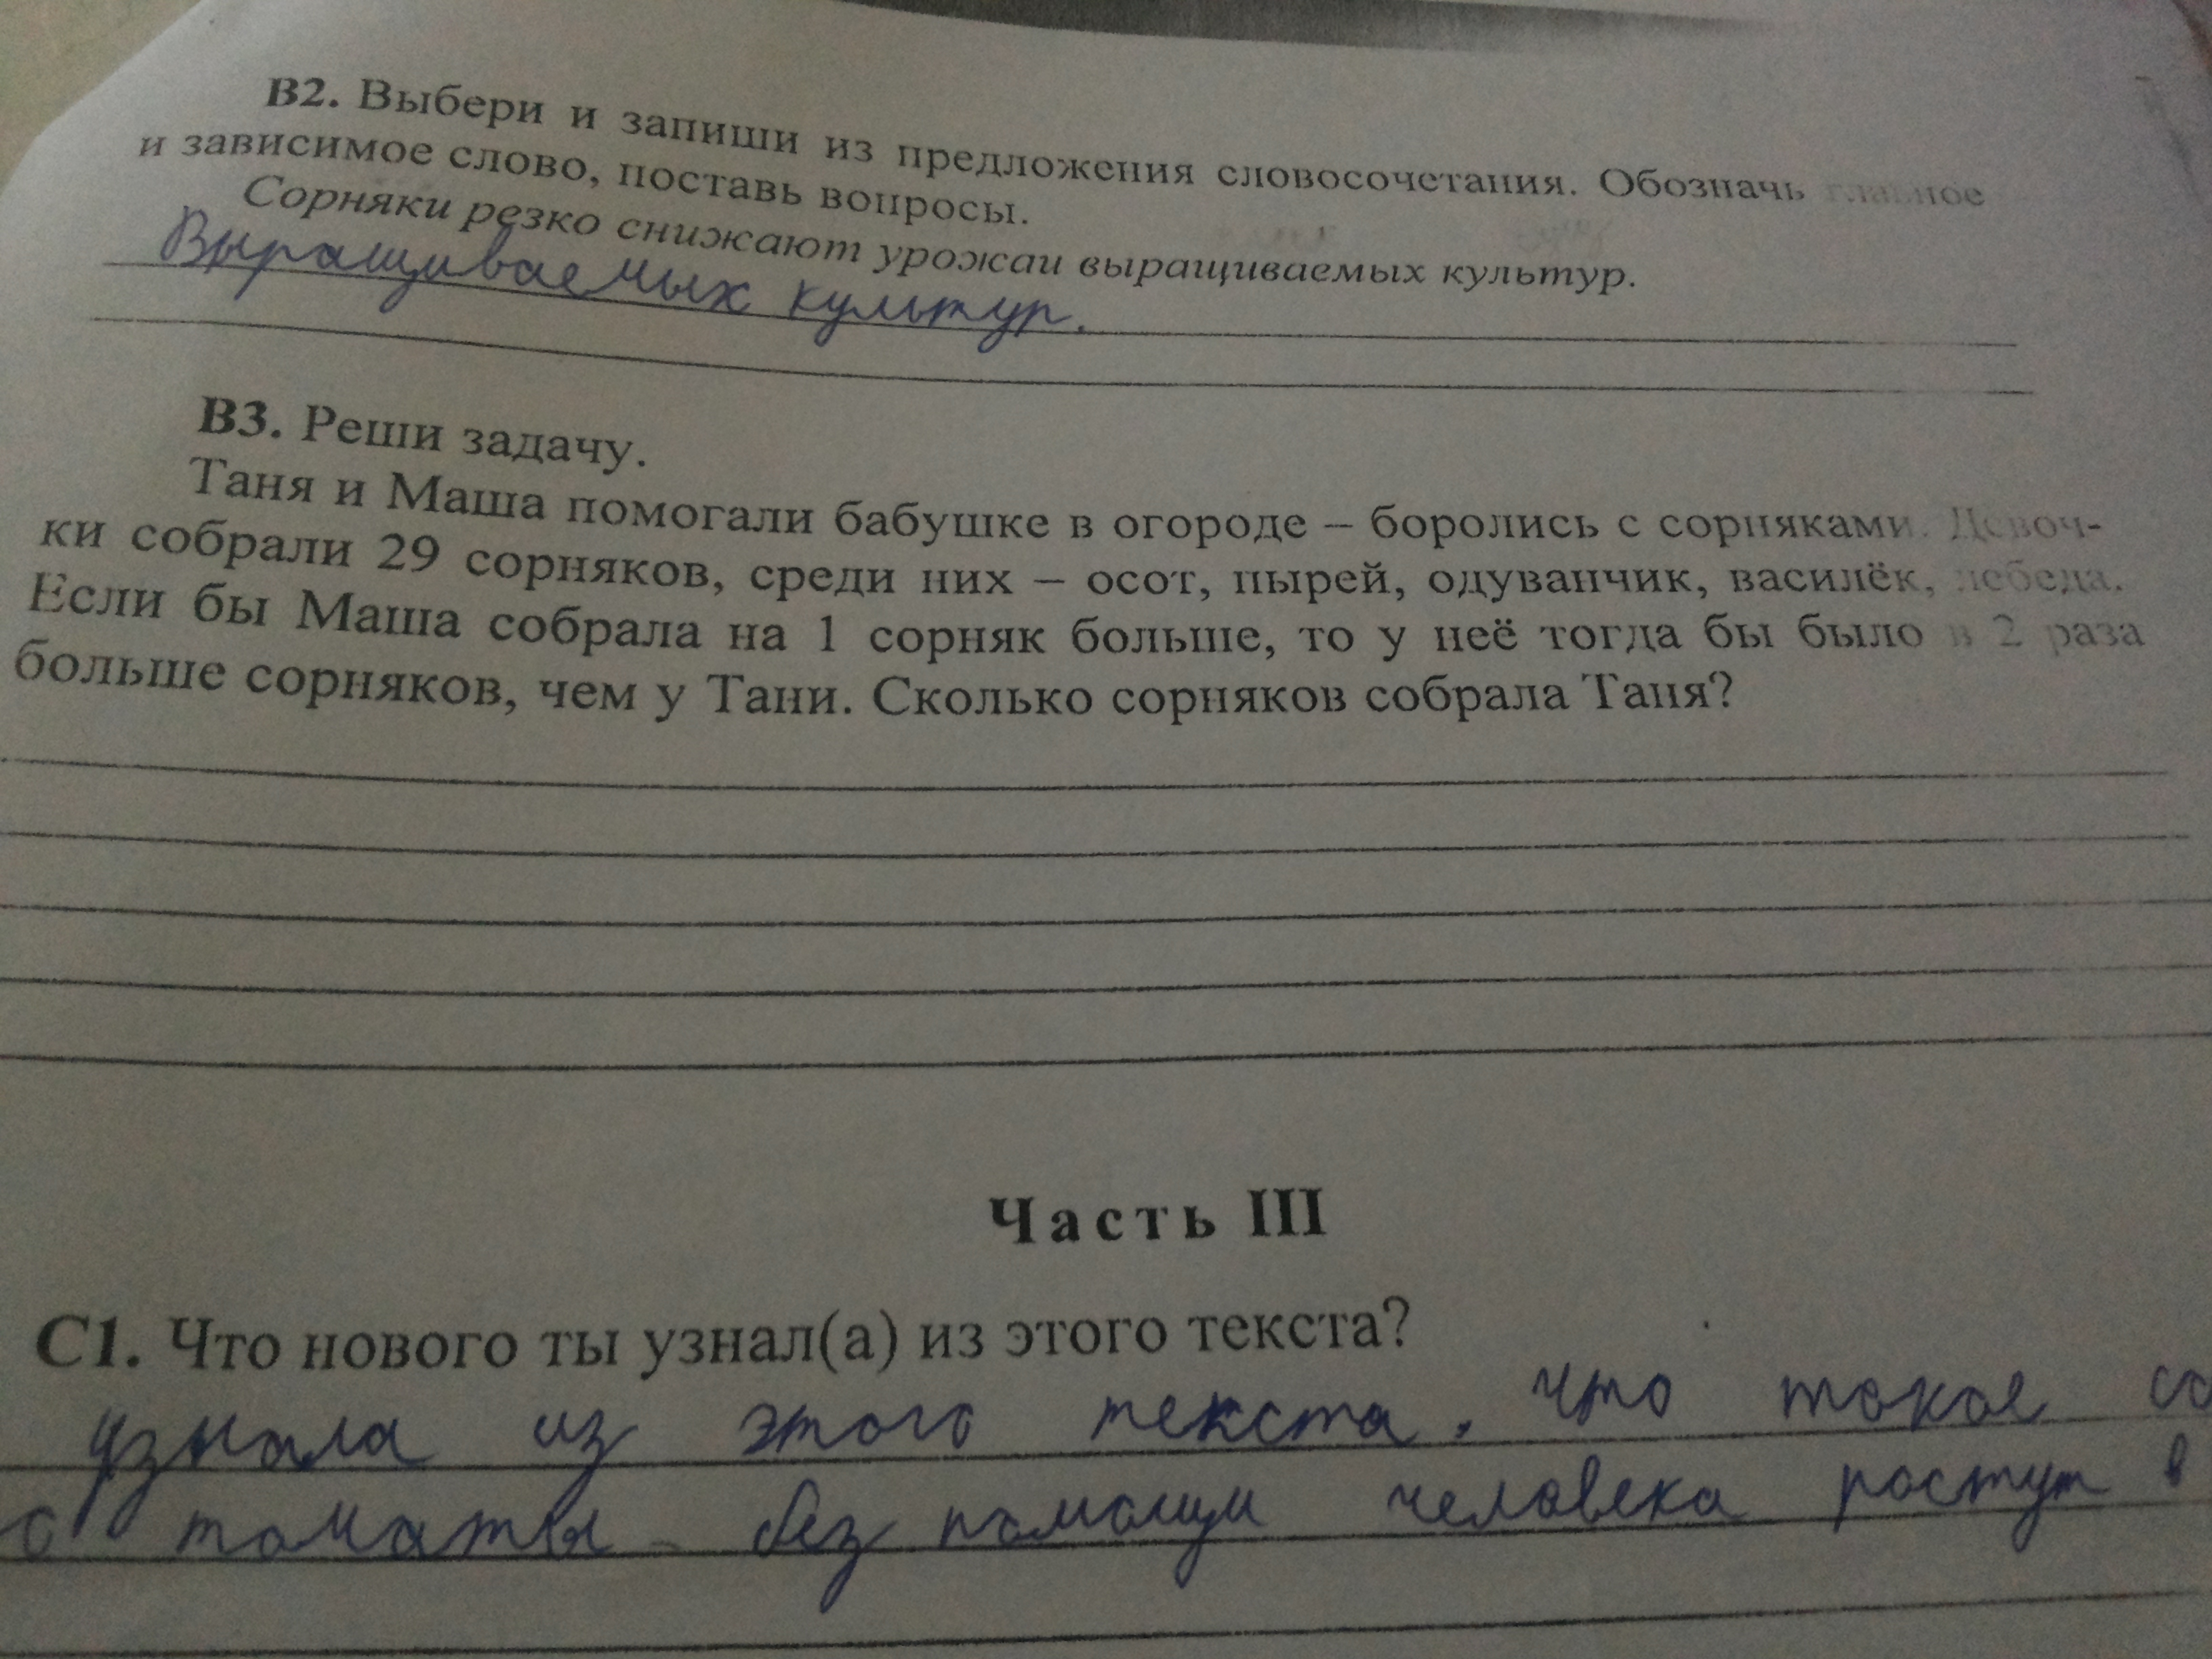 В2. Выбери и запиши из предложения словосочетания. Обозначь главное
и зависимое слово, поставь вопросы.
Сорняки резко снижают урожаи выращиваемых культур.
Выращиваемых культур.
В3. Реши задачу.
Таня и Маша помогали бабушке в огороде – боролись с сорняками. Девоч-
ки собрали 29 сорняков, среди них – осот, пырей, одуванчик, василёк, лебеда.
Если бы Маша собрала на 1 сорняк больше, то у неё тогда бы было в 2 раза
больше сорняков, чем у Тани. Сколько сорняков собрала Таня?
Часть III
С1. Что нового ты узнал(а) из этого текста?
узнала из этого текста, что такое со
томаты без помощи человека ростут в